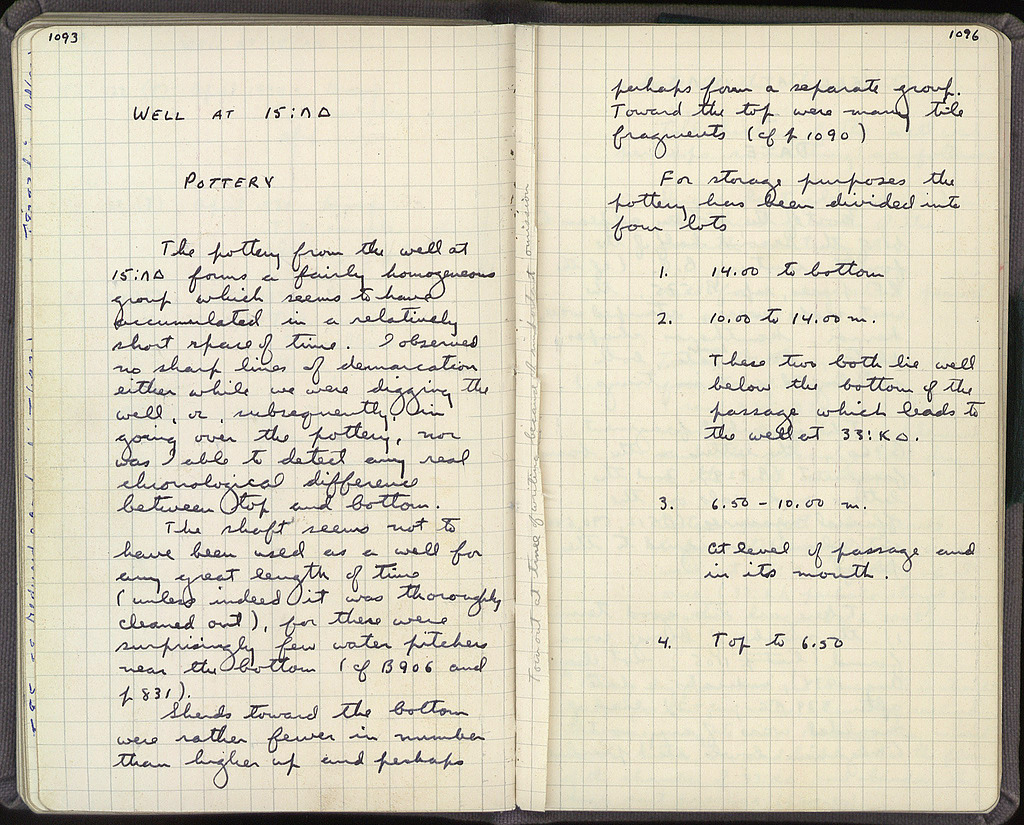 1093
WELL AT 15:ΛΔ
POTTERY
The pottery from the well at
15:ΛΔ forms a fairly homogeneous
group which seems to have
accumulated in a relatively
short space of time. I observed
no sharp lines of demarcation
either while we were digging the
well, or, subsequently, in
going over the pottery, nor
was I able to detect any real
chronological difference
between top and bottom.
The shaft seems not to
have been used as a well for
any great length of time
(unless indeed it was thoroughly
cleaned out), for there were
surprisingly few water pitchers
near the bottom (cf B906 and
p 831).
Sherds toward the bottom
were rather fewer in number
than higher up and perhaps
Torn out at time of writing because I mistake omission
1096
perhaps form a separate group.
Toward the top were many tile
fragments (cf p 1090)
For storage purposes the
pottery has been divided into
four lots
1. 14.00 to bottom
2. 10.00 to 14.00 m.
These two both lie well
below the bottom of the
passage which leads to
the well at 33:ΚΔ.
3. 6.50 - 10.00 m.
At level of passage and
in its mouth.
4. Top to 6.50